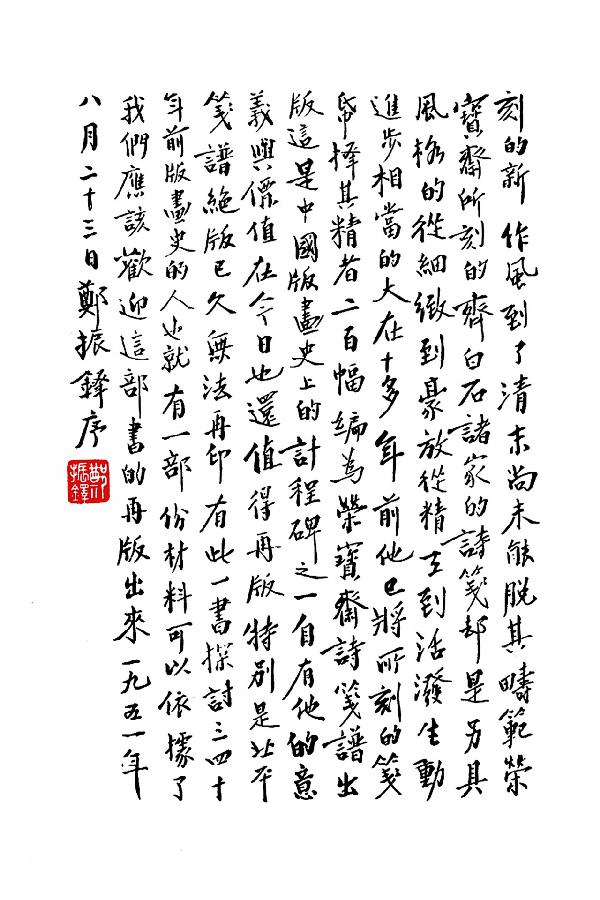 刻的新作風到了清末尚未能脱其疇範榮
寶齋所刻的齊白石諸家的詩箋却是另具
風格的從細緻到豪放從精工到活潑生動
進步相當的大在十多年前他已將所刻的箋
帋择其精者二百幅編為榮寶齋詩箋譜出
版這是中國版畫史上的計程碑之一自有他的意
義與價值在今日也還值得再版特别是北平
箋譜絶版已久無法再印有此一書探討三四十
年前版畫史的人也就有一部份材料可以依據了
我們應該歡迎這部書的再版出來一九五一年
八月二十三日鄭振鐸序
鄭振鐸